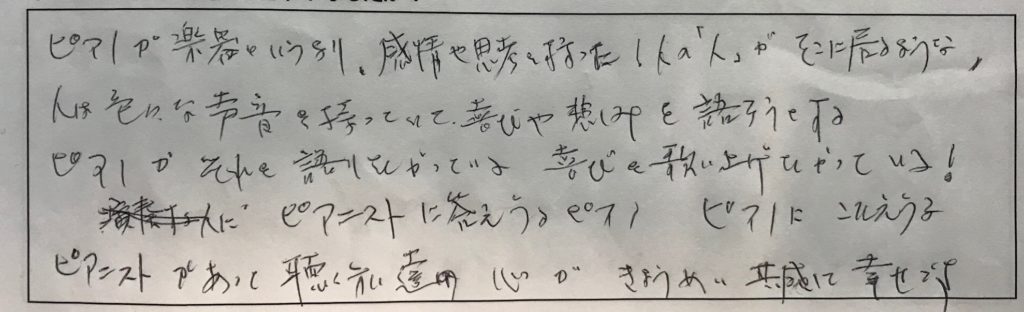 ピアノが楽器というより、感情や思考を持った1人の「人」がそこに居るような、
人は色々な声音を持っていて、喜びや悲しみを語ろうとする
ピアノがそれを語りたがっている 喜びを歌い上げたがっている!
人に ピアニストに答えうるピアノ ピアノにこたえうる
ピアニストがあって聴く方達の心がきょうめい共感して幸せです